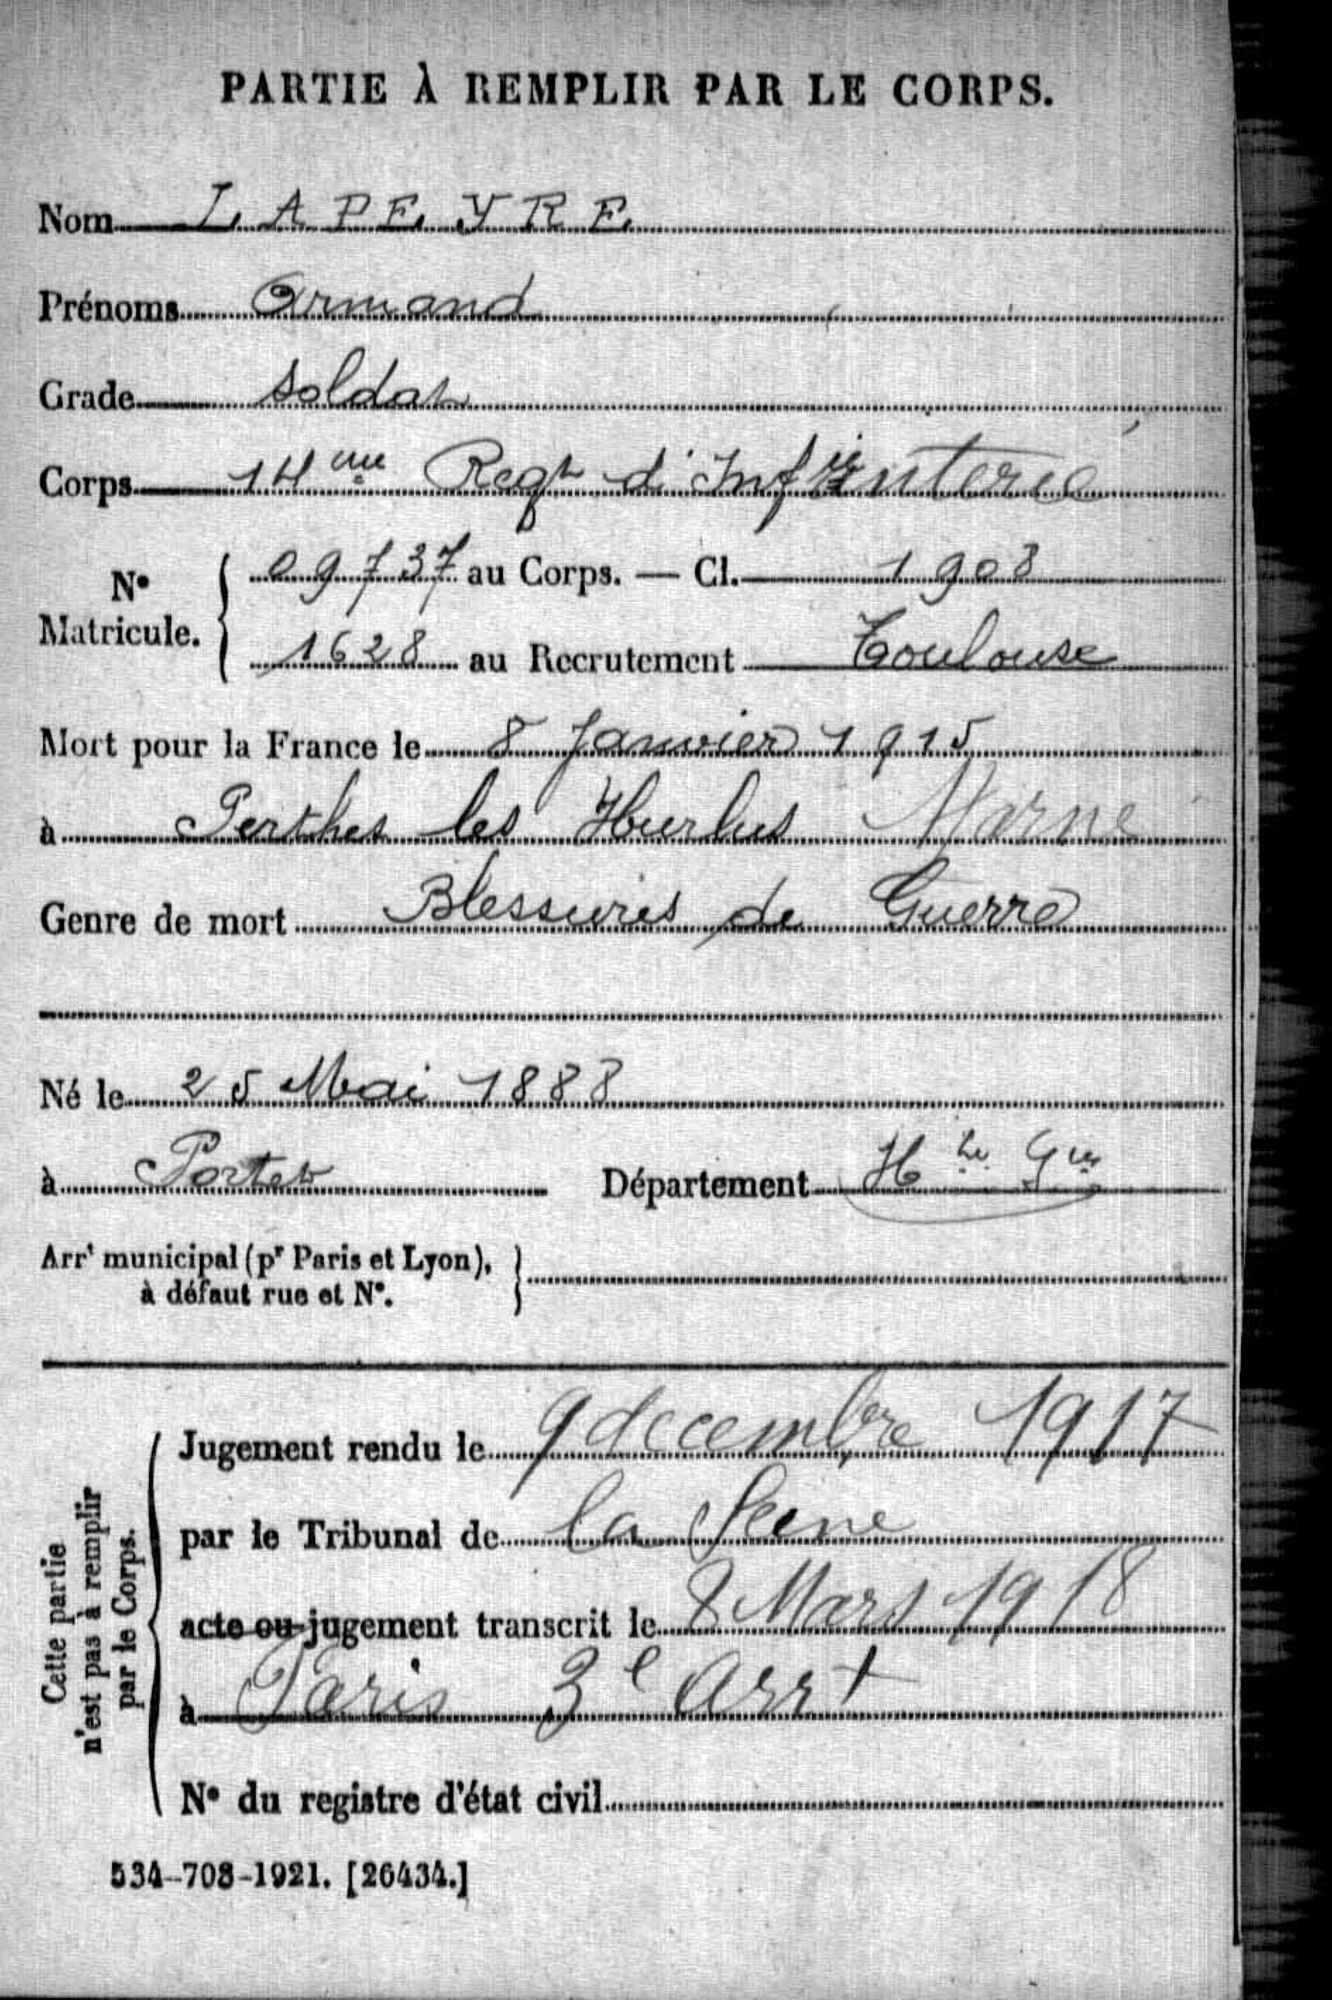 PARTIE À REMPLIR PAR LE CORPS.
Nom LAPEYRE
Prénoms Armand
Grade Soldat
Corps 14eme Regt d'Infanterie
N° Matricule. 09737 au Corps. — Cl. 1908
1628 au Recrutement Toulouse
Mort pour la France le 8 Janvier 1915
à Perthes les Hurlus Marne
Genre de mort Blessures de Guerre
Né le 25 Mai 1888
à Portet Département Hte Gne
Arrt municipal (pr Paris et Lyon),
à défaut rue et N°.
Cette partie
n'est pas à remplir
par le Corps.
Jugement rendu le 9 decembre 1917
par le Tribunal de la Seine
acte ou jugement transcrit le 8 Mars 1918
à Paris 3e Arrt
N° du registre d'état civil
534-708-1921. [26434.]